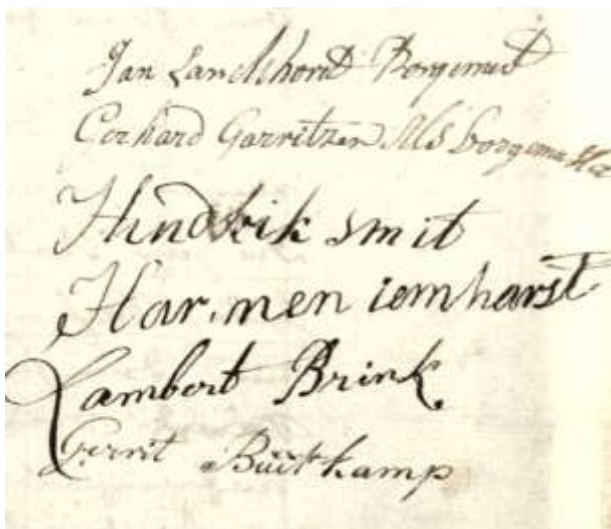 Jan Lanckhorst Borgemest
Gerhard Garritzen Als borgemester
Hindrik smit
Har.men iemharst
Lambert Brink.
Gerrit Büitkamp